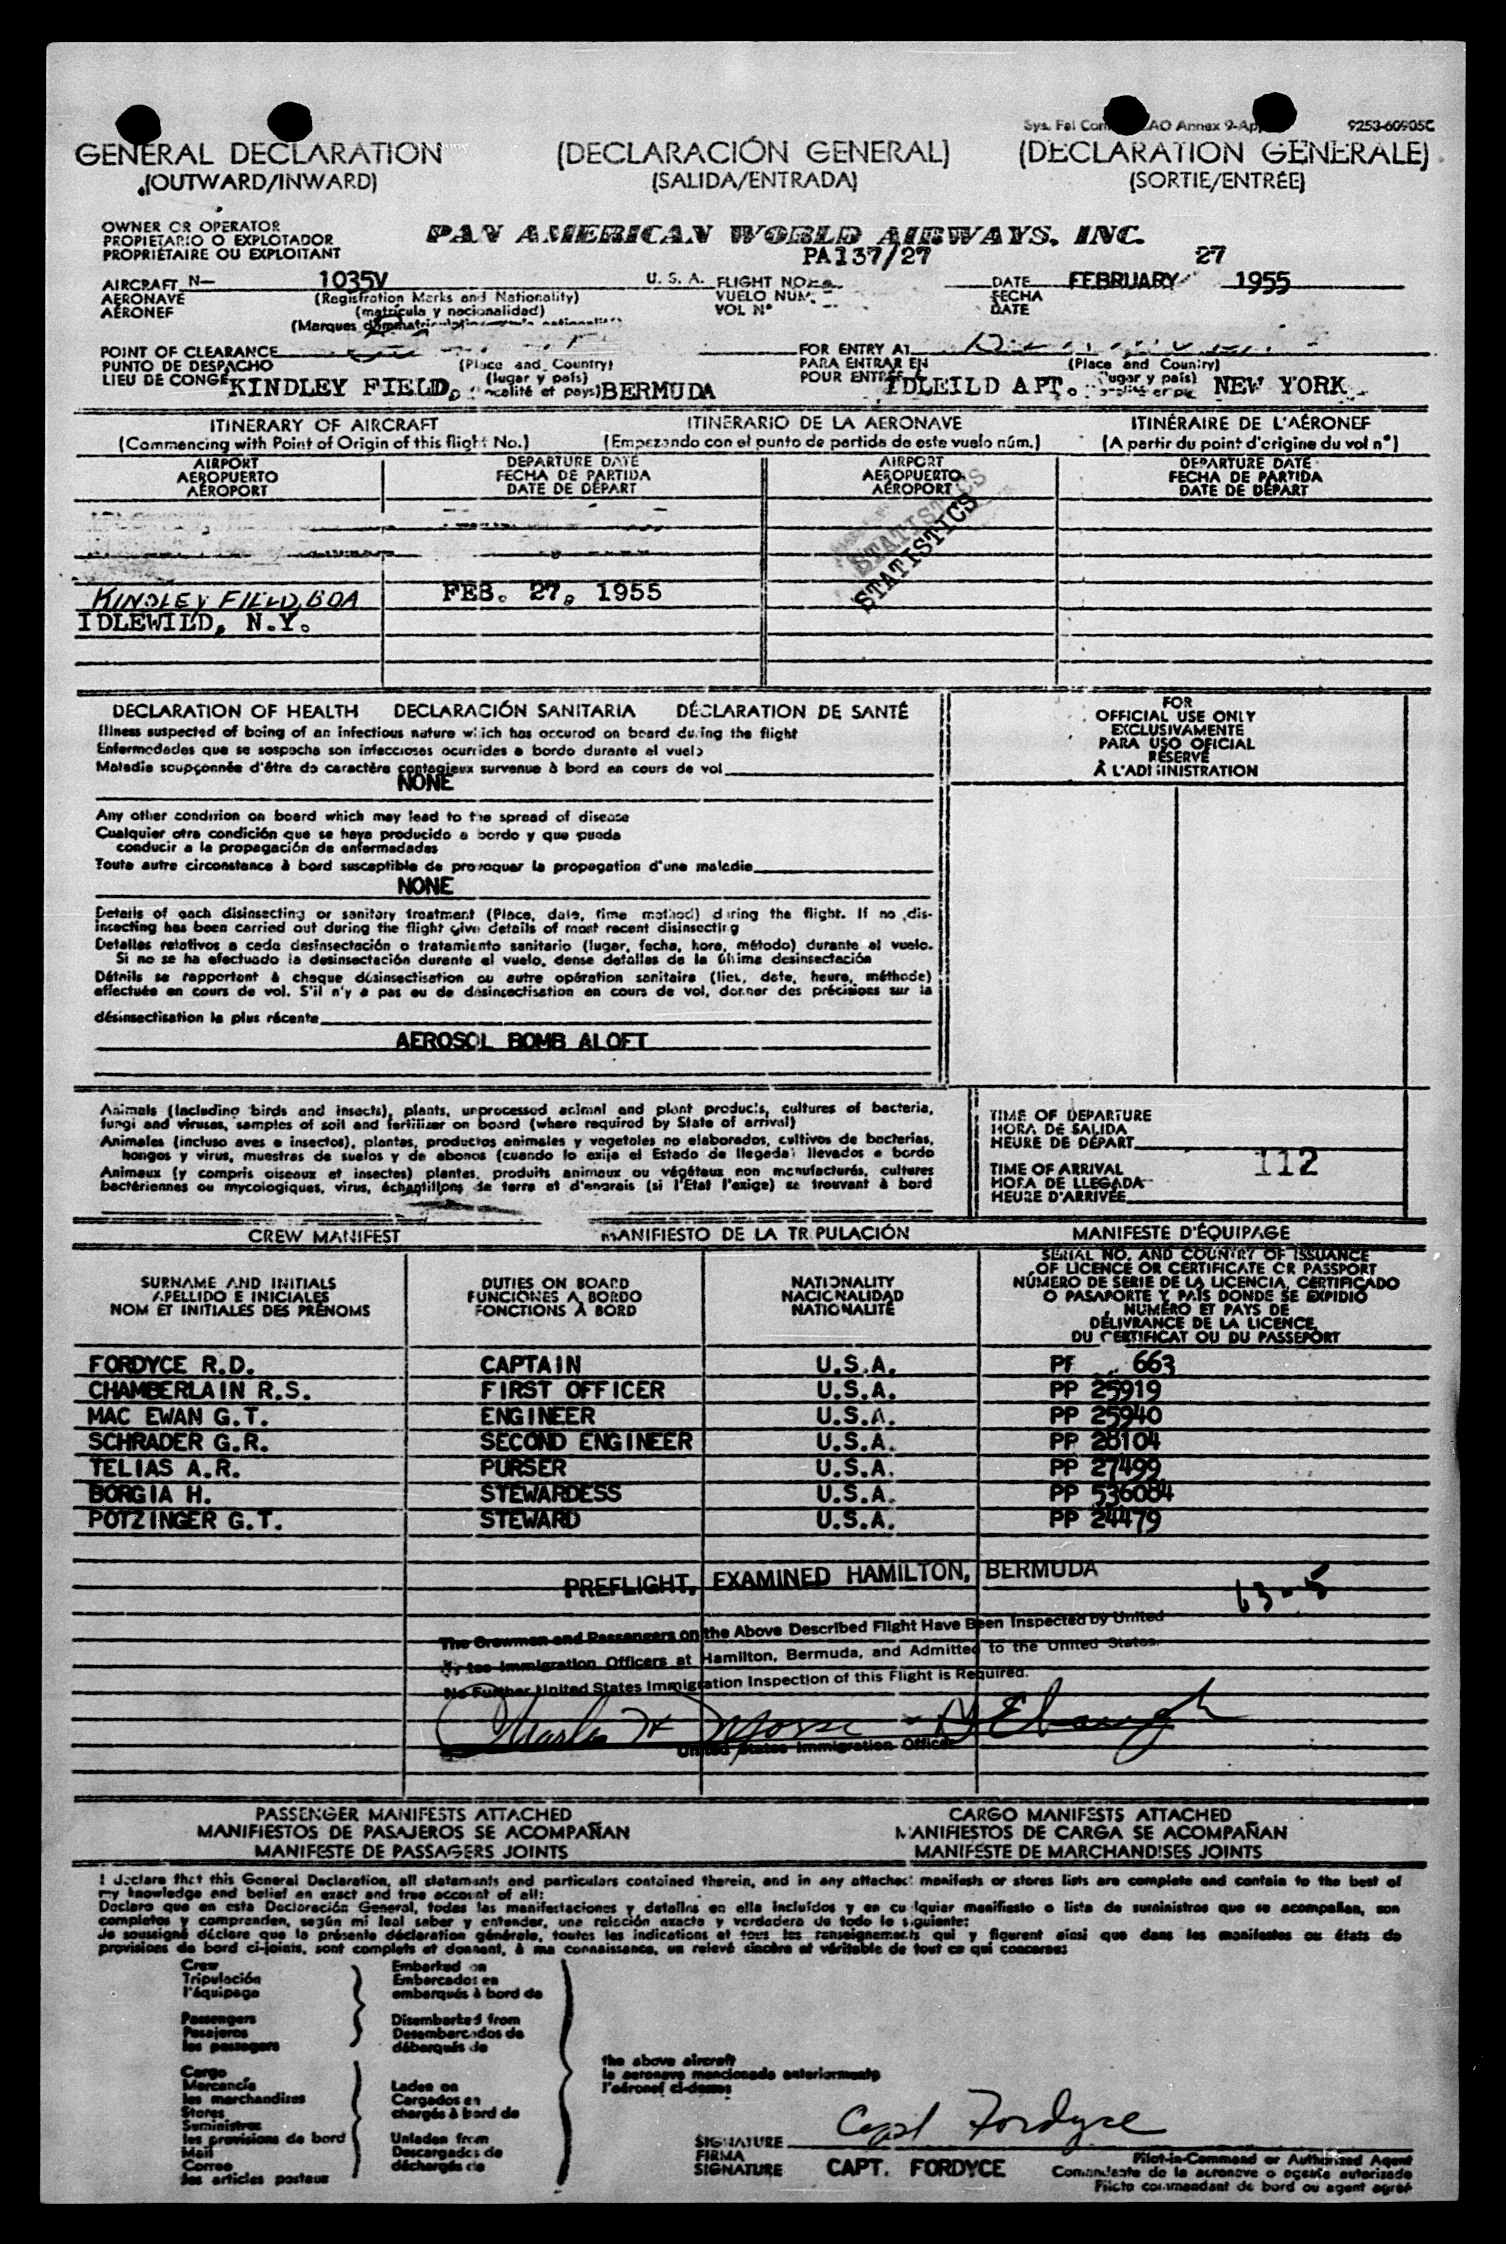 9253-60905C
GENERAL DECLARATION (DECLARACIÓN GENERAL) (DÉCLARATION GÉNÉRALE)
(OUTWARD/INWARD) (SALIDA/ENTRADA) (SORTIE/ENTRÉE)
OWNER OR OPERATOR
PROPIETARIO O EXPLOTADOR
PROPRIÉTAIRE OU EXPLOITANT
PAN AMERICAN WORLD AIRWAYS, INC.
PA137/27 27
AIRCRAFT N— 1035V U. S. A. FLIGHT NO. DATE FEBRUARY 1955
AERONAVE (Registration Marks and Nationality) VUELO NÚM. FECHA
AÉRONEF (matrícula y nacionalidad) VOL Nº DATE
(Marques
POINT OF CLEARANCE FOR ENTRY AT
PUNTO DE DESPACHO (Place and Country) PARA ENTRAR EN (Place and Country)
LIEU DE CONGÉ KINDLEY FIELD, (lugar y país) BERMUDA POUR ENTRÉE À IDLEILD APT. (lugar y país) NEW YORK
ITINERARY OF AIRCRAFT ITINERARIO DE LA AERONAVE ITINÉRAIRE DE L'AÉRONEF
(Commencing with Point of Origin of this flight No.) (Empezando con el punto de partida de este vuelo núm.) (A partir du point d'origine du vol nº)
AIRPORT DEPARTURE DATE AIRPORT DEPARTURE DATE
AEROPUERTO FECHA DE PARTIDA AEROPUERTO FECHA DE PARTIDA
AÉROPORT DATE DE DÉPART AÉROPORT DATE DE DÉPART
STATISTICS
STATISTICS
KINDLEY FIELD, BDA FEB. 27, 1955
IDLEWILD, N.Y.
DECLARATION OF HEALTH DECLARACIÓN SANITARIA DÉCLARATION DE SANTÉ
Illness suspected of being of an infectious nature which has occured on board during the flight
Enfermedades que se sospecha son infecciosas ocurridas a bordo durante el vuelo
Maladie soupçonnée d'être de caractère contagieux survenue à bord en cours de vol
NONE
Any other condition on board which may lead to the spread of disease
Cualquier otra condición que se haya producido a bordo y que pueda
conducir a la propagación de enfermedades
Toute autre circonstance à bord susceptible de provoquer la propagation d'une maladie
NONE
Details of each disinsecting or sanitary treatment (Place, date, time method) during the flight. If no dis-
insecting has been carried out during the flight give details of most recent disinsecting
Detalles relativos a cada desinsectación o tratamiento sanitario (lugar, fecha, hora, método) durante el vuelo.
Si no se ha efectuado la desinsectación durante el vuelo, dense detalles de la última desinsectación
Détails se rapportant à chaque désinsectisation ou autre opération sanitaire (lieu, date, heure, méthode)
effectuée en cours de vol. S'il n'y a pas eu de désinsectisation en cours de vol, donner des précisions sur la
désinsectisation la plus récente
AEROSOL BOMB ALOFT
FOR
OFFICIAL USE ONLY
EXCLUSIVAMENTE
PARA USO OFICIAL
RÉSERVÉ
À L'ADMINISTRATION
Animals (including birds and insects), plants, unprocessed animal and plant products, cultures of bacteria,
fungi and viruses, samples of soil and fertilizer on board (where required by State of arrival)
Animales (incluso aves e insectos), plantas, productos animales y vegetales no elaborados, cultivos de bacterias,
hongos y virus, muestras de suelos y de abonos (cuando lo exija el Estado de llegada) llevados a bordo
Animaux (y compris oiseaux et insectes) plantes, produits animaux ou végétaux non manufacturés, cultures
bactériennes ou mycologiques, virus, échantillons de terre et d'engrais (si l'État l'exige) se trouvant à bord
TIME OF DEPARTURE
HORA DE SALIDA
HEURE DE DÉPART
112
TIME OF ARRIVAL
HORA DE LLEGADA
HEURE D'ARRIVÉE
CREW MANIFEST MANIFIESTO DE LA TRIPULACIÓN MANIFESTE D'ÉQUIPAGE
SURNAME AND INITIALS
APELLIDO E INICIALES
NOM ET INITIALES DES PRÉNOMS
DUTIES ON BOARD
FUNCIONES A BORDO
FONCTIONS À BORD
NATIONALITY
NACIONALIDAD
NATIONALITÉ
SERIAL NO. AND COUNTRY OF ISSUANCE
OF LICENCE OR CERTIFICATE OR PASSPORT
NÚMERO DE SERIE DE LA LICENCIA, CERTIFICADO
O PASAPORTE Y PAÍS DONDE SE EXPIDIÓ
NUMÉRO ET PAYS DE
DÉLIVRANCE DE LA LICENCE,
DU CERTIFICAT OU DU PASSEPORT
FORDYCE R.D. CAPTAIN U.S.A. PF 663
CHAMBERLAIN R.S. FIRST OFFICER U.S.A. PP 25919
MAC EWAN G.T. ENGINEER U.S.A. PP 25940
SCHRADER G.R. SECOND ENGINEER U.S.A. PP 28104
TELIAS A.R. PURSER U.S.A. PP 27499
BORGIA H. STEWARDESS U.S.A. PP 536084
POTZINGER G.T. STEWARD U.S.A. PP 24479
PREFLIGHT, EXAMINED HAMILTON, BERMUDA
63-5
The Crewmen and Passengers on the Above Described Flight Have Been Inspected by United
States Immigration Officers at Hamilton, Bermuda, and Admitted to the United States.
No Further United States Immigration Inspection of this Flight is Required.
Charles H Morse
United States Immigration Officer
PASSENGER MANIFESTS ATTACHED CARGO MANIFESTS ATTACHED
MANIFIESTOS DE PASAJEROS SE ACOMPAÑAN MANIFIESTOS DE CARGA SE ACOMPAÑAN
MANIFESTE DE PASSAGERS JOINTS MANIFESTE DE MARCHANDISES JOINTS
I declare that this General Declaration, all statements and particulars contained therein, and in any attached manifests or stores lists are complete and contain to the best of
my knowledge and belief an exact and true account of all:
Declaro que en esta Declaración General, todas las manifestaciones y detalles en ella incluídos y en cualquiar manifiesto o lista de suministros que se acompañan, son
completos y comprenden, según mi leal saber y entender, una relación exacta y verdadera de todo lo siguiente:
Je soussigné déclare que la présente déclaration générale, toutes les indications et tous les renseignements qui y figurent ainsi que dans les manifestes ou états de
provisions de bord ci-joints, sont complets et donnent, à ma connaissance, un relevé sincère et véritable de tout ce qui concerne:
Crew Embarked on
Tripulación Embarcados en
l'équipage embarqués à bord de
Passengers Disembarked from
Pasajeros Desembarcados de
les passagers débarqués de
the above aircraft
la aeronave mencionada anteriormente
l'aéronef ci-dessus
Cargo
Mercancía Laden on
les marchandises Cargados en
Stores chargés à bord de
Suministros
les provisions de bord Unladen from
Mail Descargados de
Correo déchargés de
les articles postaux
Capt Fordyce
SIGNATURE
FIRMA
SIGNATURE CAPT. FORDYCE
Pilot-in-Command or Authorized Agent
Comandante de la aeronave o agente autorizado
Pilote commandant de bord ou agent agréé